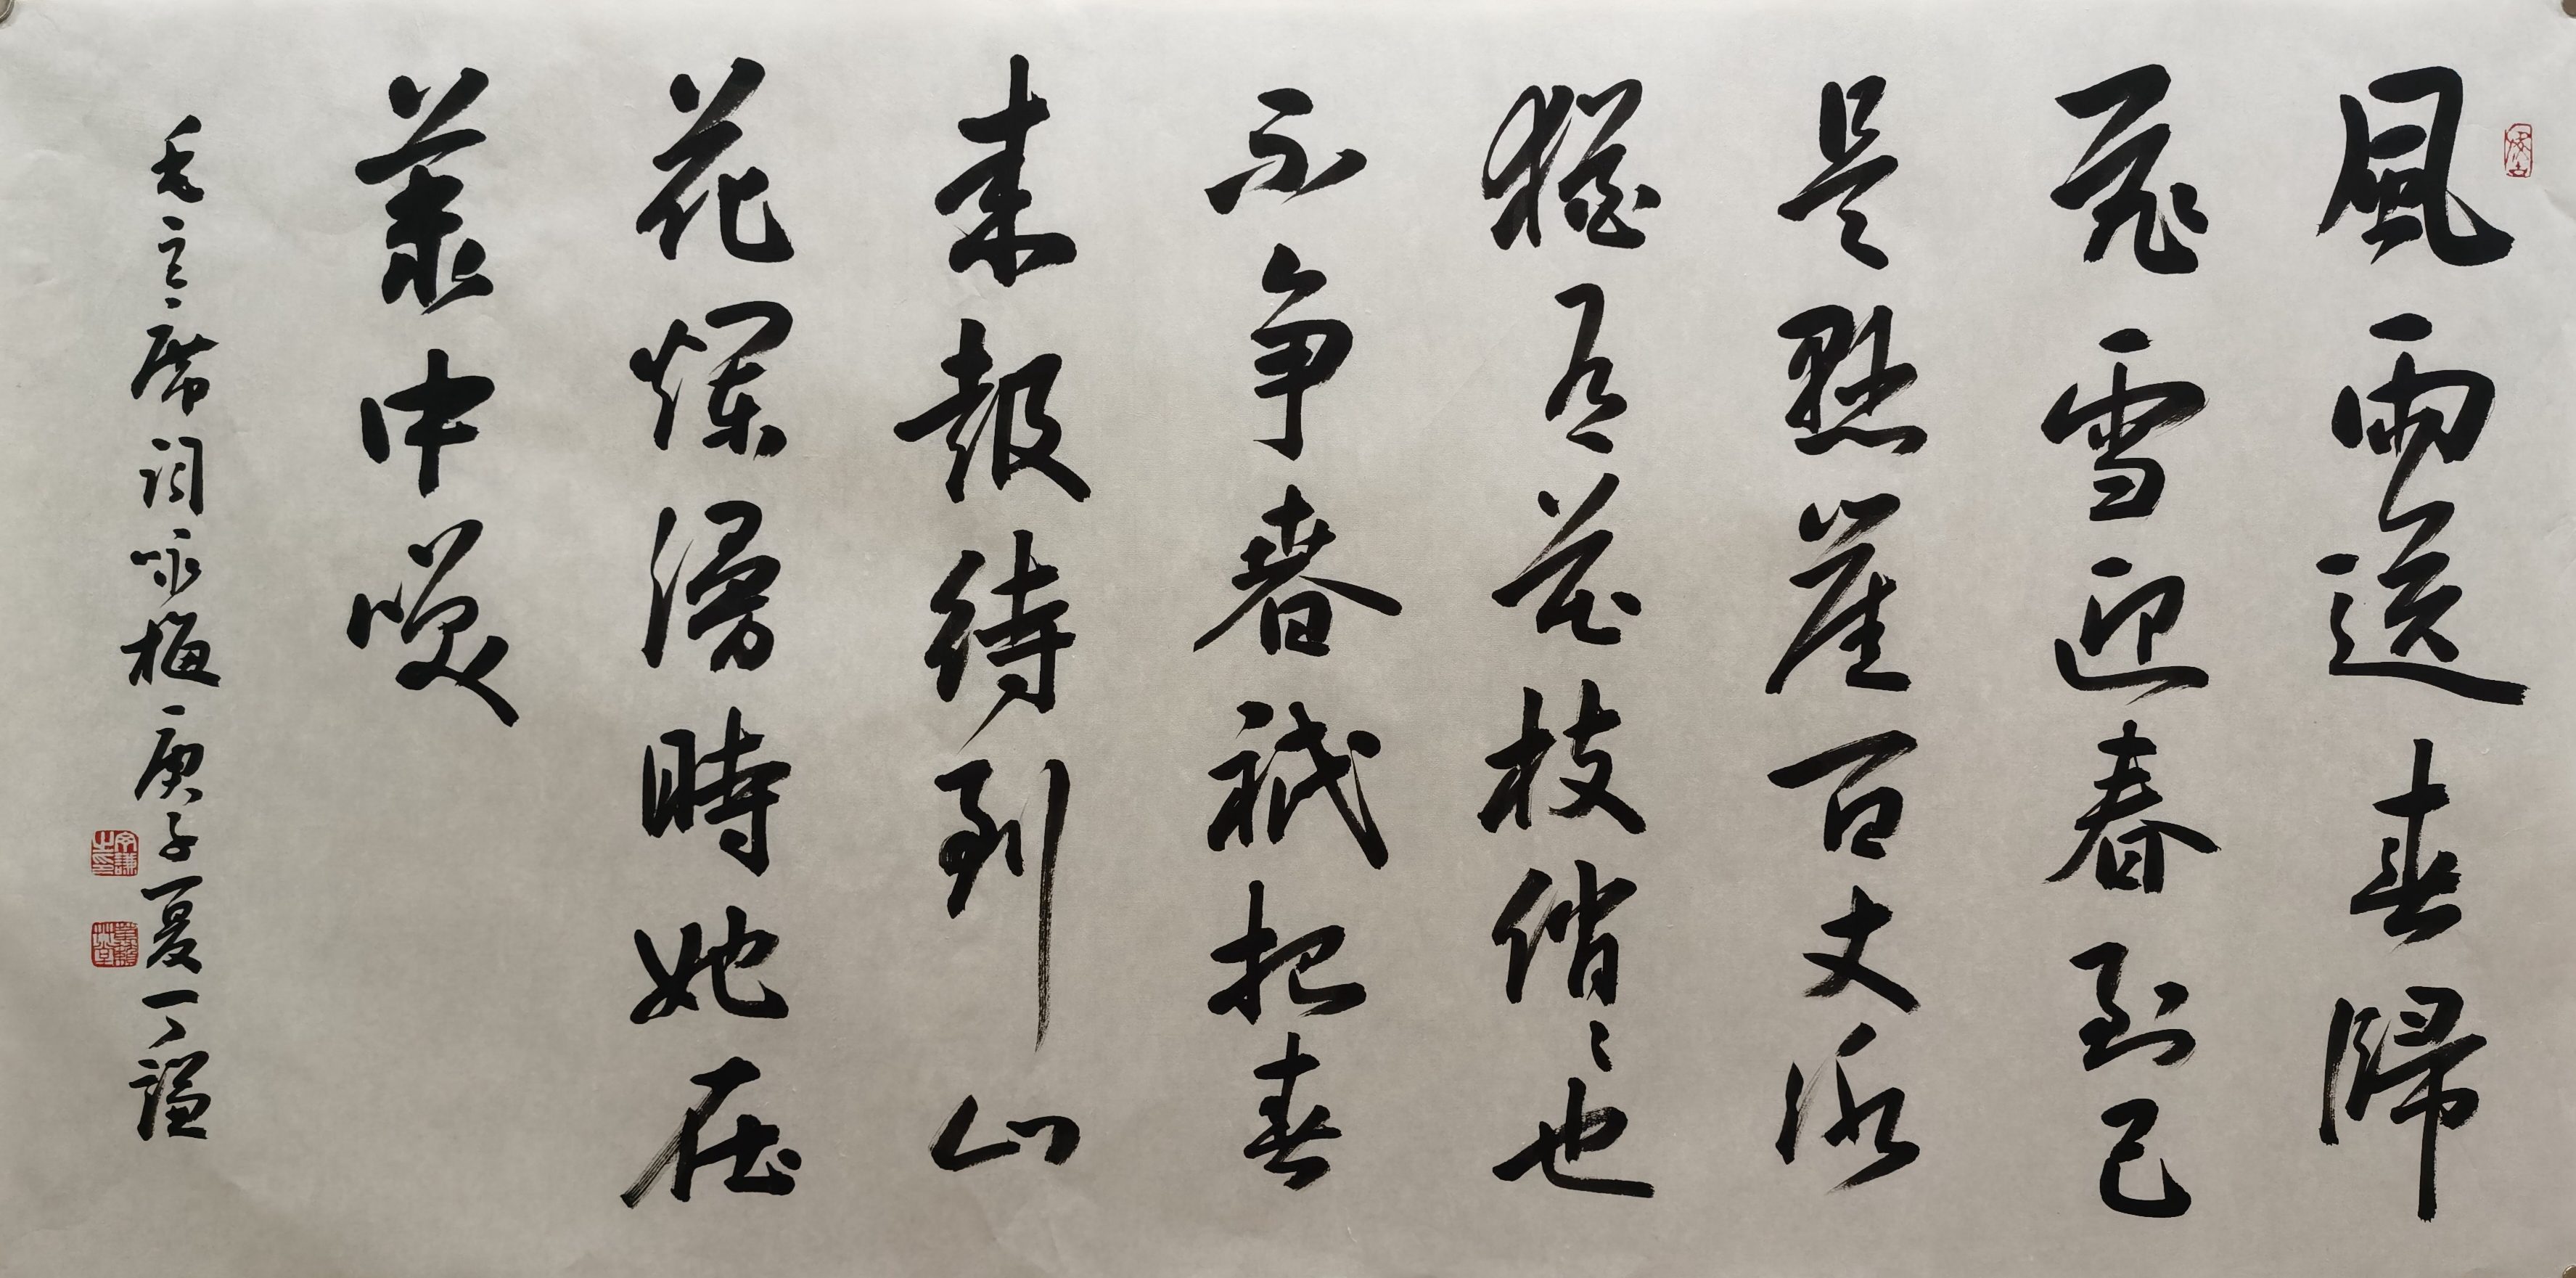 風雨送春歸
飛雪迎春到已
是懸崖百丈冰
猶有花枝俏〻也
不争春祇把春
来報待到山
花爛漫時她在
叢中笑
毛主席詞咏梅庚子夏丁謙